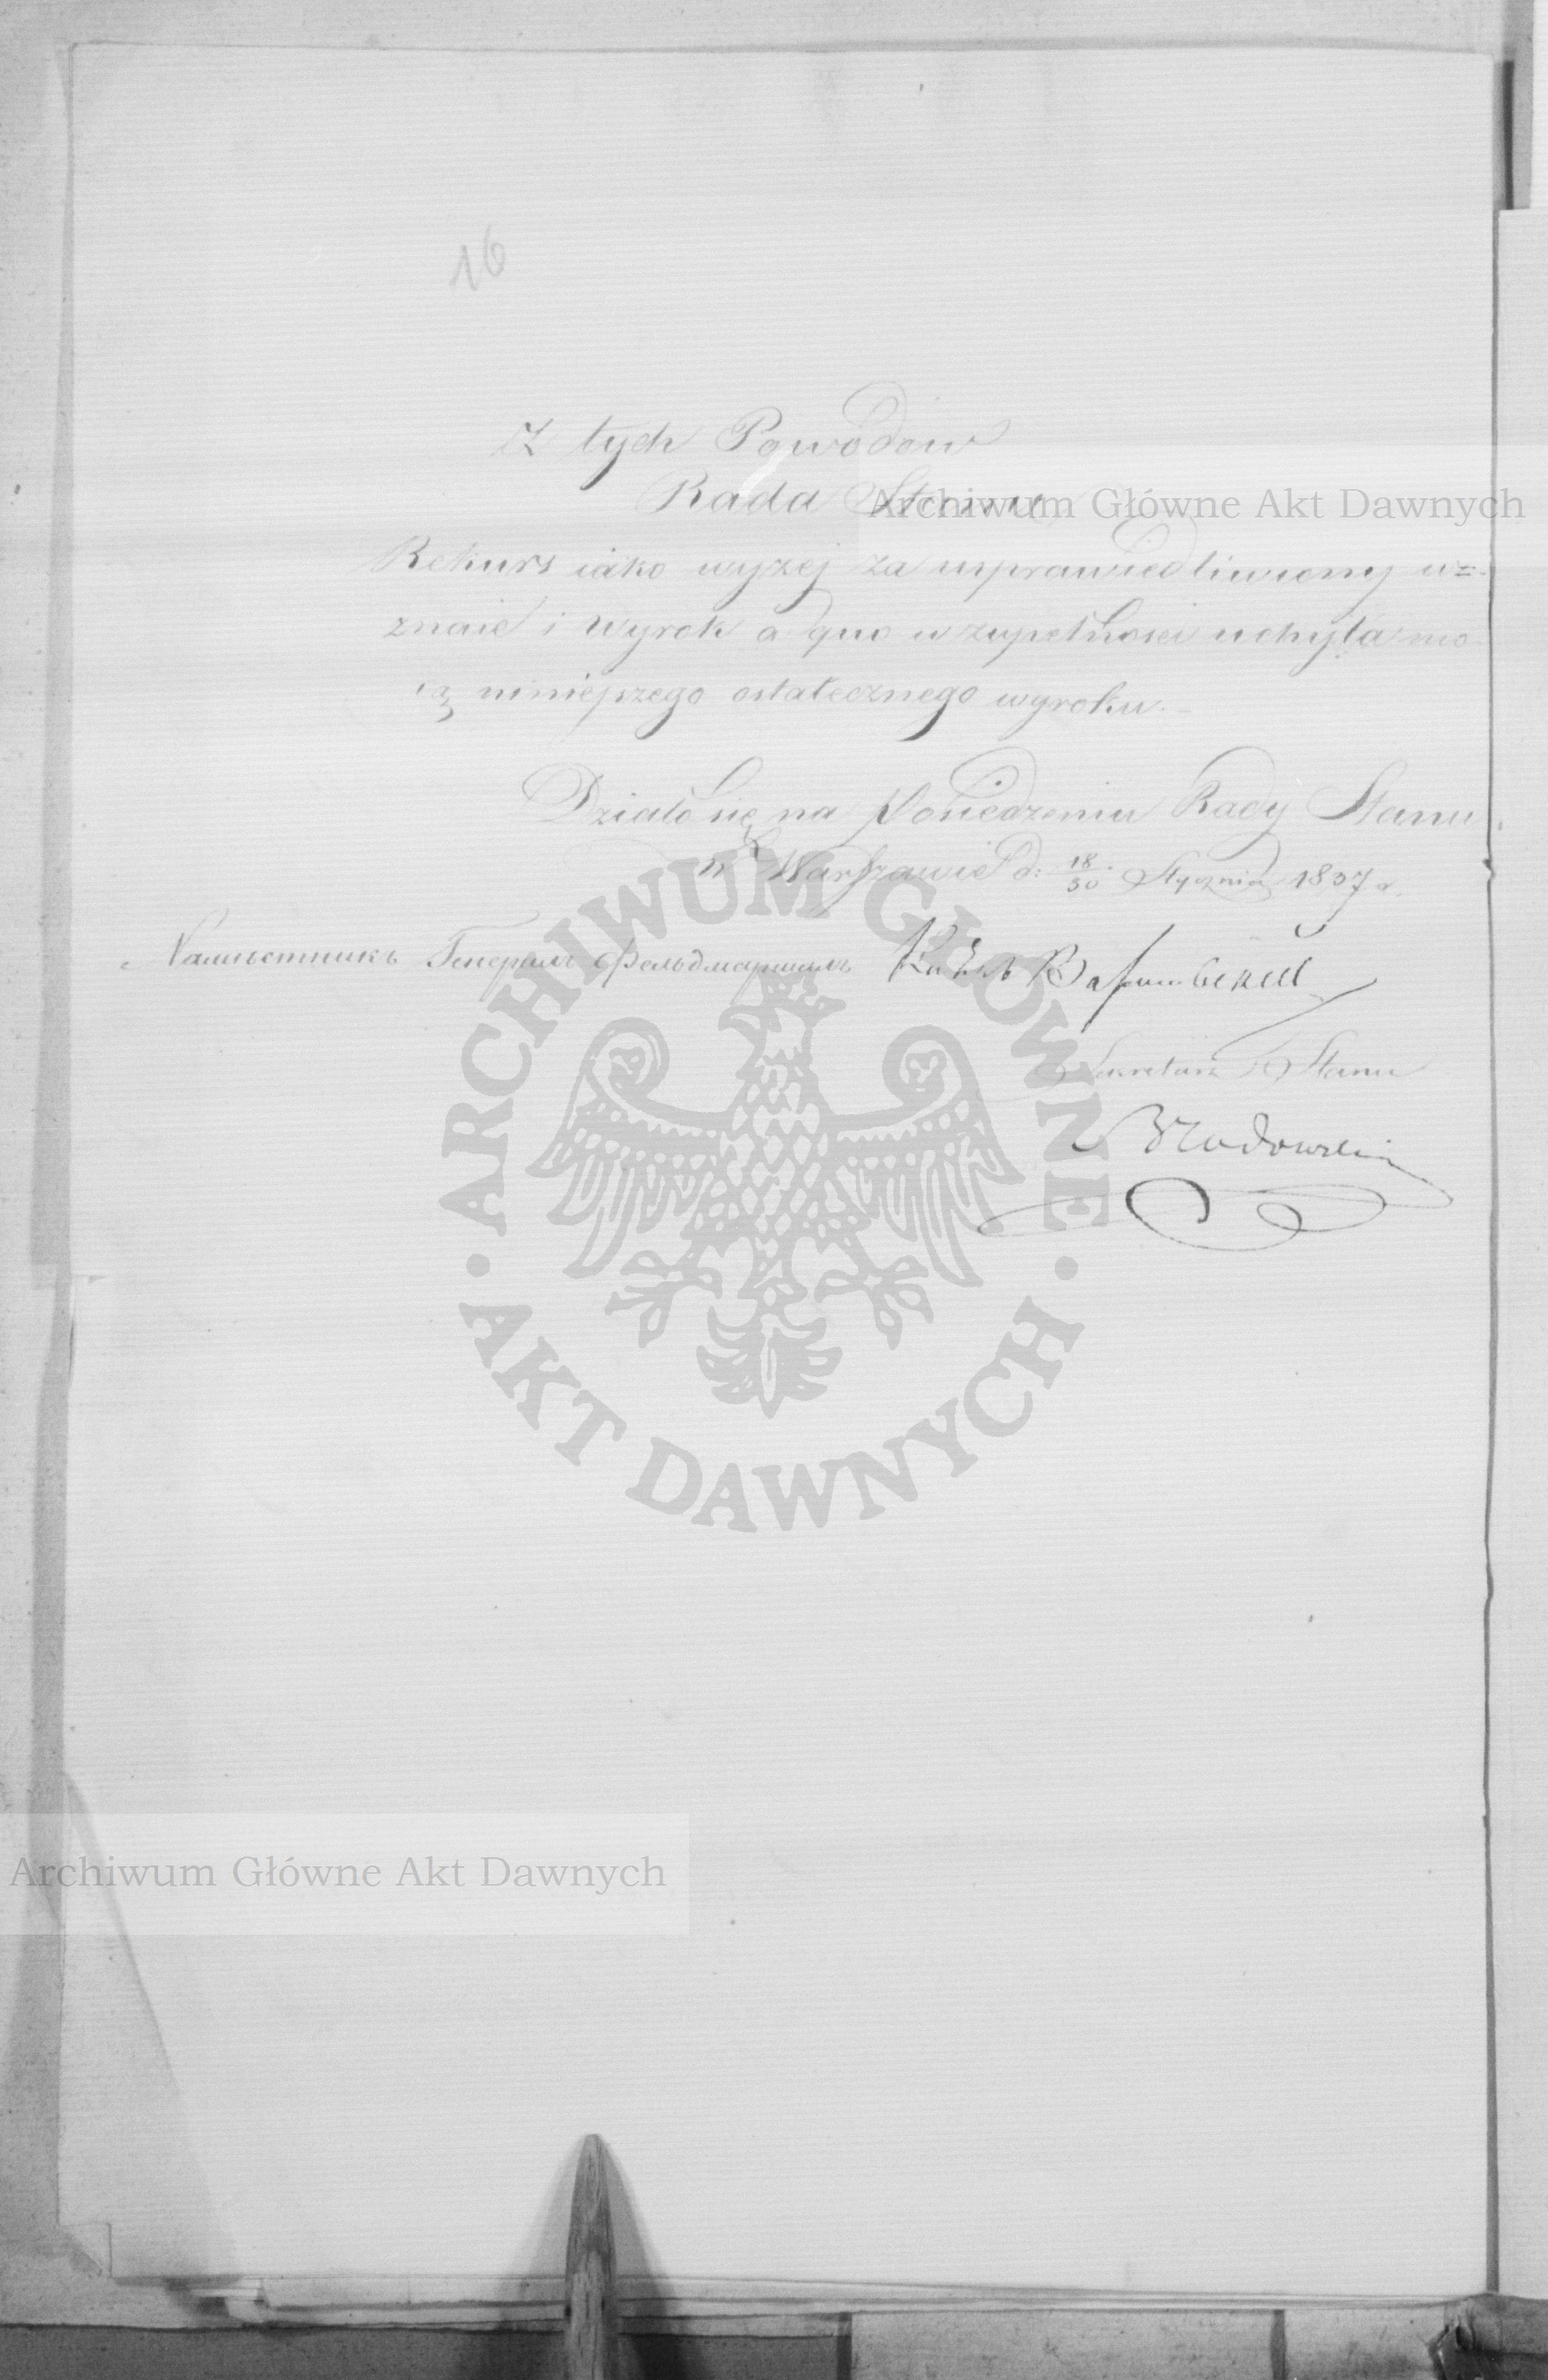 16
Z tych Powodow
Rada Stanu
Archiwum Główne Akt Dawnych
Rekurs iako wyzej za usprawiedliwiony u=
znaie i wyrok a quo w zupełnosci uchyla mo
cą niniejszego ostatecznego wyroku.
Działo się na Posiedzeniu Rady Stanu
w Warszawie d: 18/30 Stycznia 1837 r.
Намѣстникъ Генералъ Фельдмаршалъ Князь Варшавскій
Sekretarz Stanu
ARCHIWUM GŁÓWNE
· AKT DAWNYCH ·
Archiwum Główne Akt Dawnych